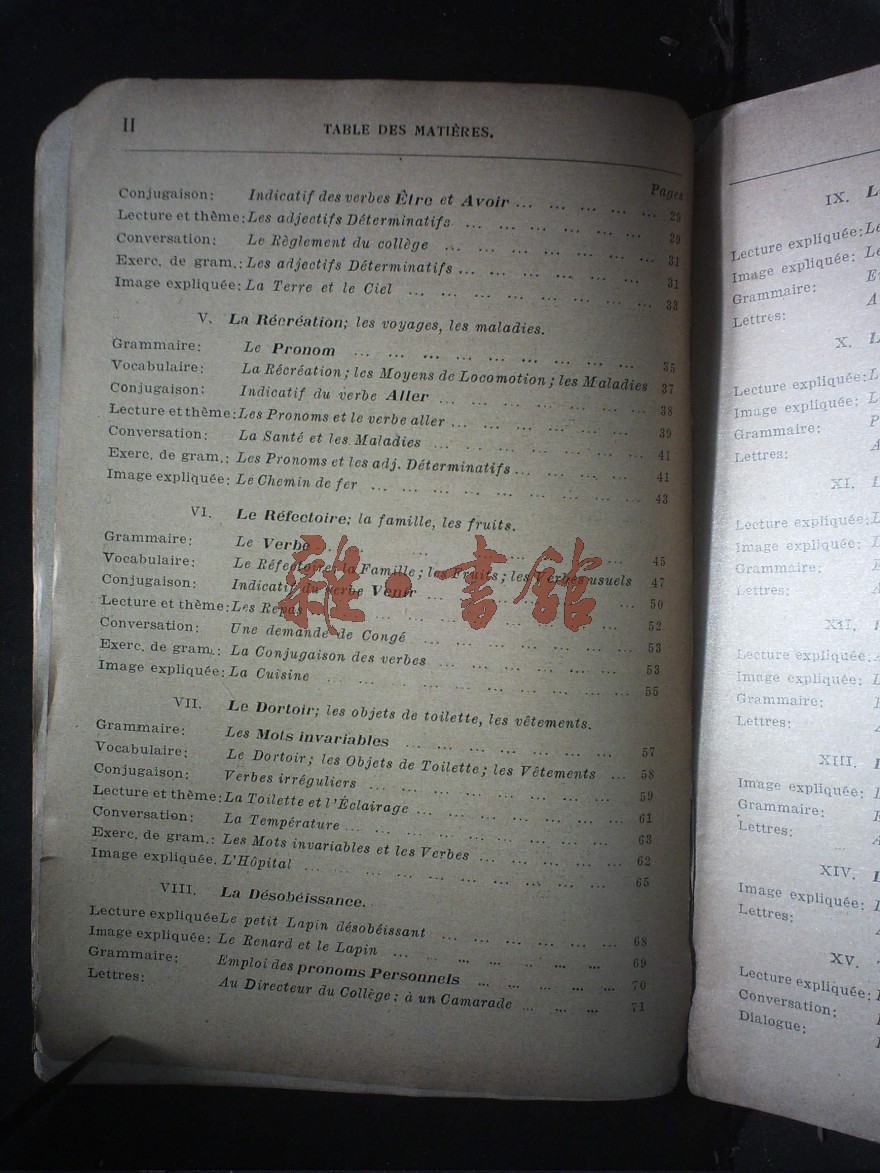 II
TABLE DES MATIÈRES.
Pages
Conjugaison: Indicatif des verbes Être et Avoir ... ... ... ... ... ... 29
Lecture et thème: Les adjectifs Déterminatifs ... ... ... ... ... ... 29
Conversation: Le Règlement du collège ... ... ... ... ... ... 31
Exerc. de gram.: Les adjectifs Déterminatifs ... ... ... ... ... ... 31
Image expliquée: La Terre et le Ciel ... ... ... ... ... ... 33
V. La Récréation; les voyages, les maladies.
Grammaire: Le Pronom ... ... ... ... ... ... ... ... 35
Vocabulaire: La Récréation; les Moyens de Locomotion; les Maladies 37
Conjugaison: Indicatif du verbe Aller ... ... ... ... ... ... 38
Lecture et thème: Les Pronoms et le verbe aller ... ... ... ... ... 39
Conversation: La Santé et les Maladies ... ... ... ... ... ... 41
Exerc. de gram.: Les Pronoms et les adj. Déterminatifs ... ... ... ... 41
Image expliquée: Le Chemin de fer ... ... ... ... ... ... ... 43
VI. Le Réfectoire; la famille, les fruits.
Grammaire: Le Verbe ... ... ... ... ... ... 45
Vocabulaire: Le Réfectoire; la Famille; les Fruits; les Verbes usuels 47
Conjugaison: Indicatif du verbe Venir ... ... ... ... ... 50
Lecture et thème: Les Repas ... ... ... ... ... 52
Conversation: Une demande de Congé ... ... ... ... ... ... 53
Exerc. de gram.: La Conjugaison des verbes ... ... ... ... ... ... 53
Image expliquée: La Cuisine ... ... ... ... ... ... ... 55
VII. Le Dortoir; les objets de toilette, les vêtements.
Grammaire: Les Mots invariables ... ... ... ... ... ... 57
Vocabulaire: Le Dortoir; les Objets de Toilette; les Vêtements ... 58
Conjugaison: Verbes irréguliers ... ... ... ... ... ... ... 59
Lecture et thème: La Toilette et l'Éclairage ... ... ... ... ... ... 61
Conversation: La Température ... ... ... ... ... ... ... 63
Exerc. de gram.: Les Mots invariables et les Verbes ... ... ... ... ... 62
Image expliquée. L'Hôpital ... ... ... ... ... ... ... 65
VIII. La Désobéissance.
Lecture expliquée Le petit Lapin désobéissant ... ... ... ... ... ... 68
Image expliquée: Le Renard et le Lapin ... ... ... ... ... ... 69
Grammaire: Emploi des pronoms Personnels ... ... ... ... ... 70
Lettres: Au Directeur du Collège; à un Camarade ... ... ... 71
雜·書館
IX.
Lecture expliquée:
Image expliquée:
Grammaire:
Lettres:
X.
Lecture expliquée:
Image expliquée:
Grammaire:
Lettres:
XI.
Lecture expliquée:
Image expliquée:
Grammaire:
Lettres:
XII.
Lecture expliquée
Image expliquée:
Grammaire:
Lettres:
XIII.
Image expliquée:
Grammaire:
Lettres:
XIV.
Image expliquée:
Lettres:
XV.
Lecture expliquée:
Conversation:
Dialogue: